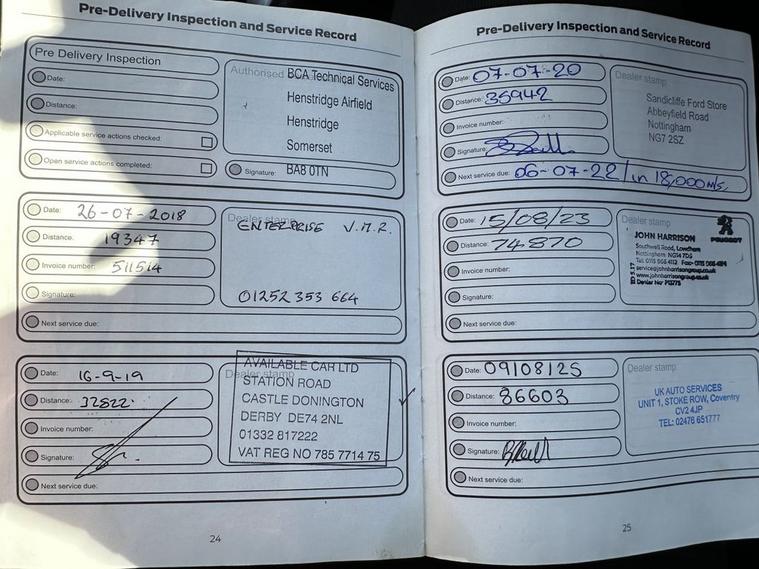 Pre-Delivery Inspection and Service Record
Pre Delivery Inspection
Date:
Distance:
Applicable service actions checked:
Open service actions completed:
Authorised
BCA Technical Services
Henstridge Airfield
Henstridge
Somerset
BA8 0TN
Signature:
Date: 26-07-2018
Distance: 19347
Invoice number: 511514
Signature:
Next service due:
Dealer stamp
ENTERPRISE V.M.R.
01252 353 664
Date: 16-9-19
Distance: 32822
Invoice number:
Signature:
Next service due:
Dealer stamp
AVAILABLE CAR LTD
STATION ROAD
CASTLE DONINGTON
DERBY DE74 2NL
01332 817222
VAT REG NO 785 7714 75
24
Pre-Delivery Inspection and Service Record
Date: 07-07-20
Distance: 35942
Invoice number:
Signature:
Next service due: 06-07-22/in 18,000mls.
Dealer stamp
Sandicliffe Ford Store
Abbeyfield Road
Nottingham
NG7 2SZ
Date: 15/08/23
Distance: 74870
Invoice number:
Signature:
Next service due:
Dealer stamp
JOHN HARRISON
PEUGEOT
Southwell Road, Lowdham
Nottingham NG14 7DS
service@johnharrisongroup.co.uk
www.johnharrisongroup.co.uk
Date: 09/08/25
Distance: 86603
Invoice number:
Signature:
Next service due:
Dealer stamp
UK AUTO SERVICES
UNIT 1, STOKE ROW, Coventry
CV2 4JP
TEL: 02476 651777
25